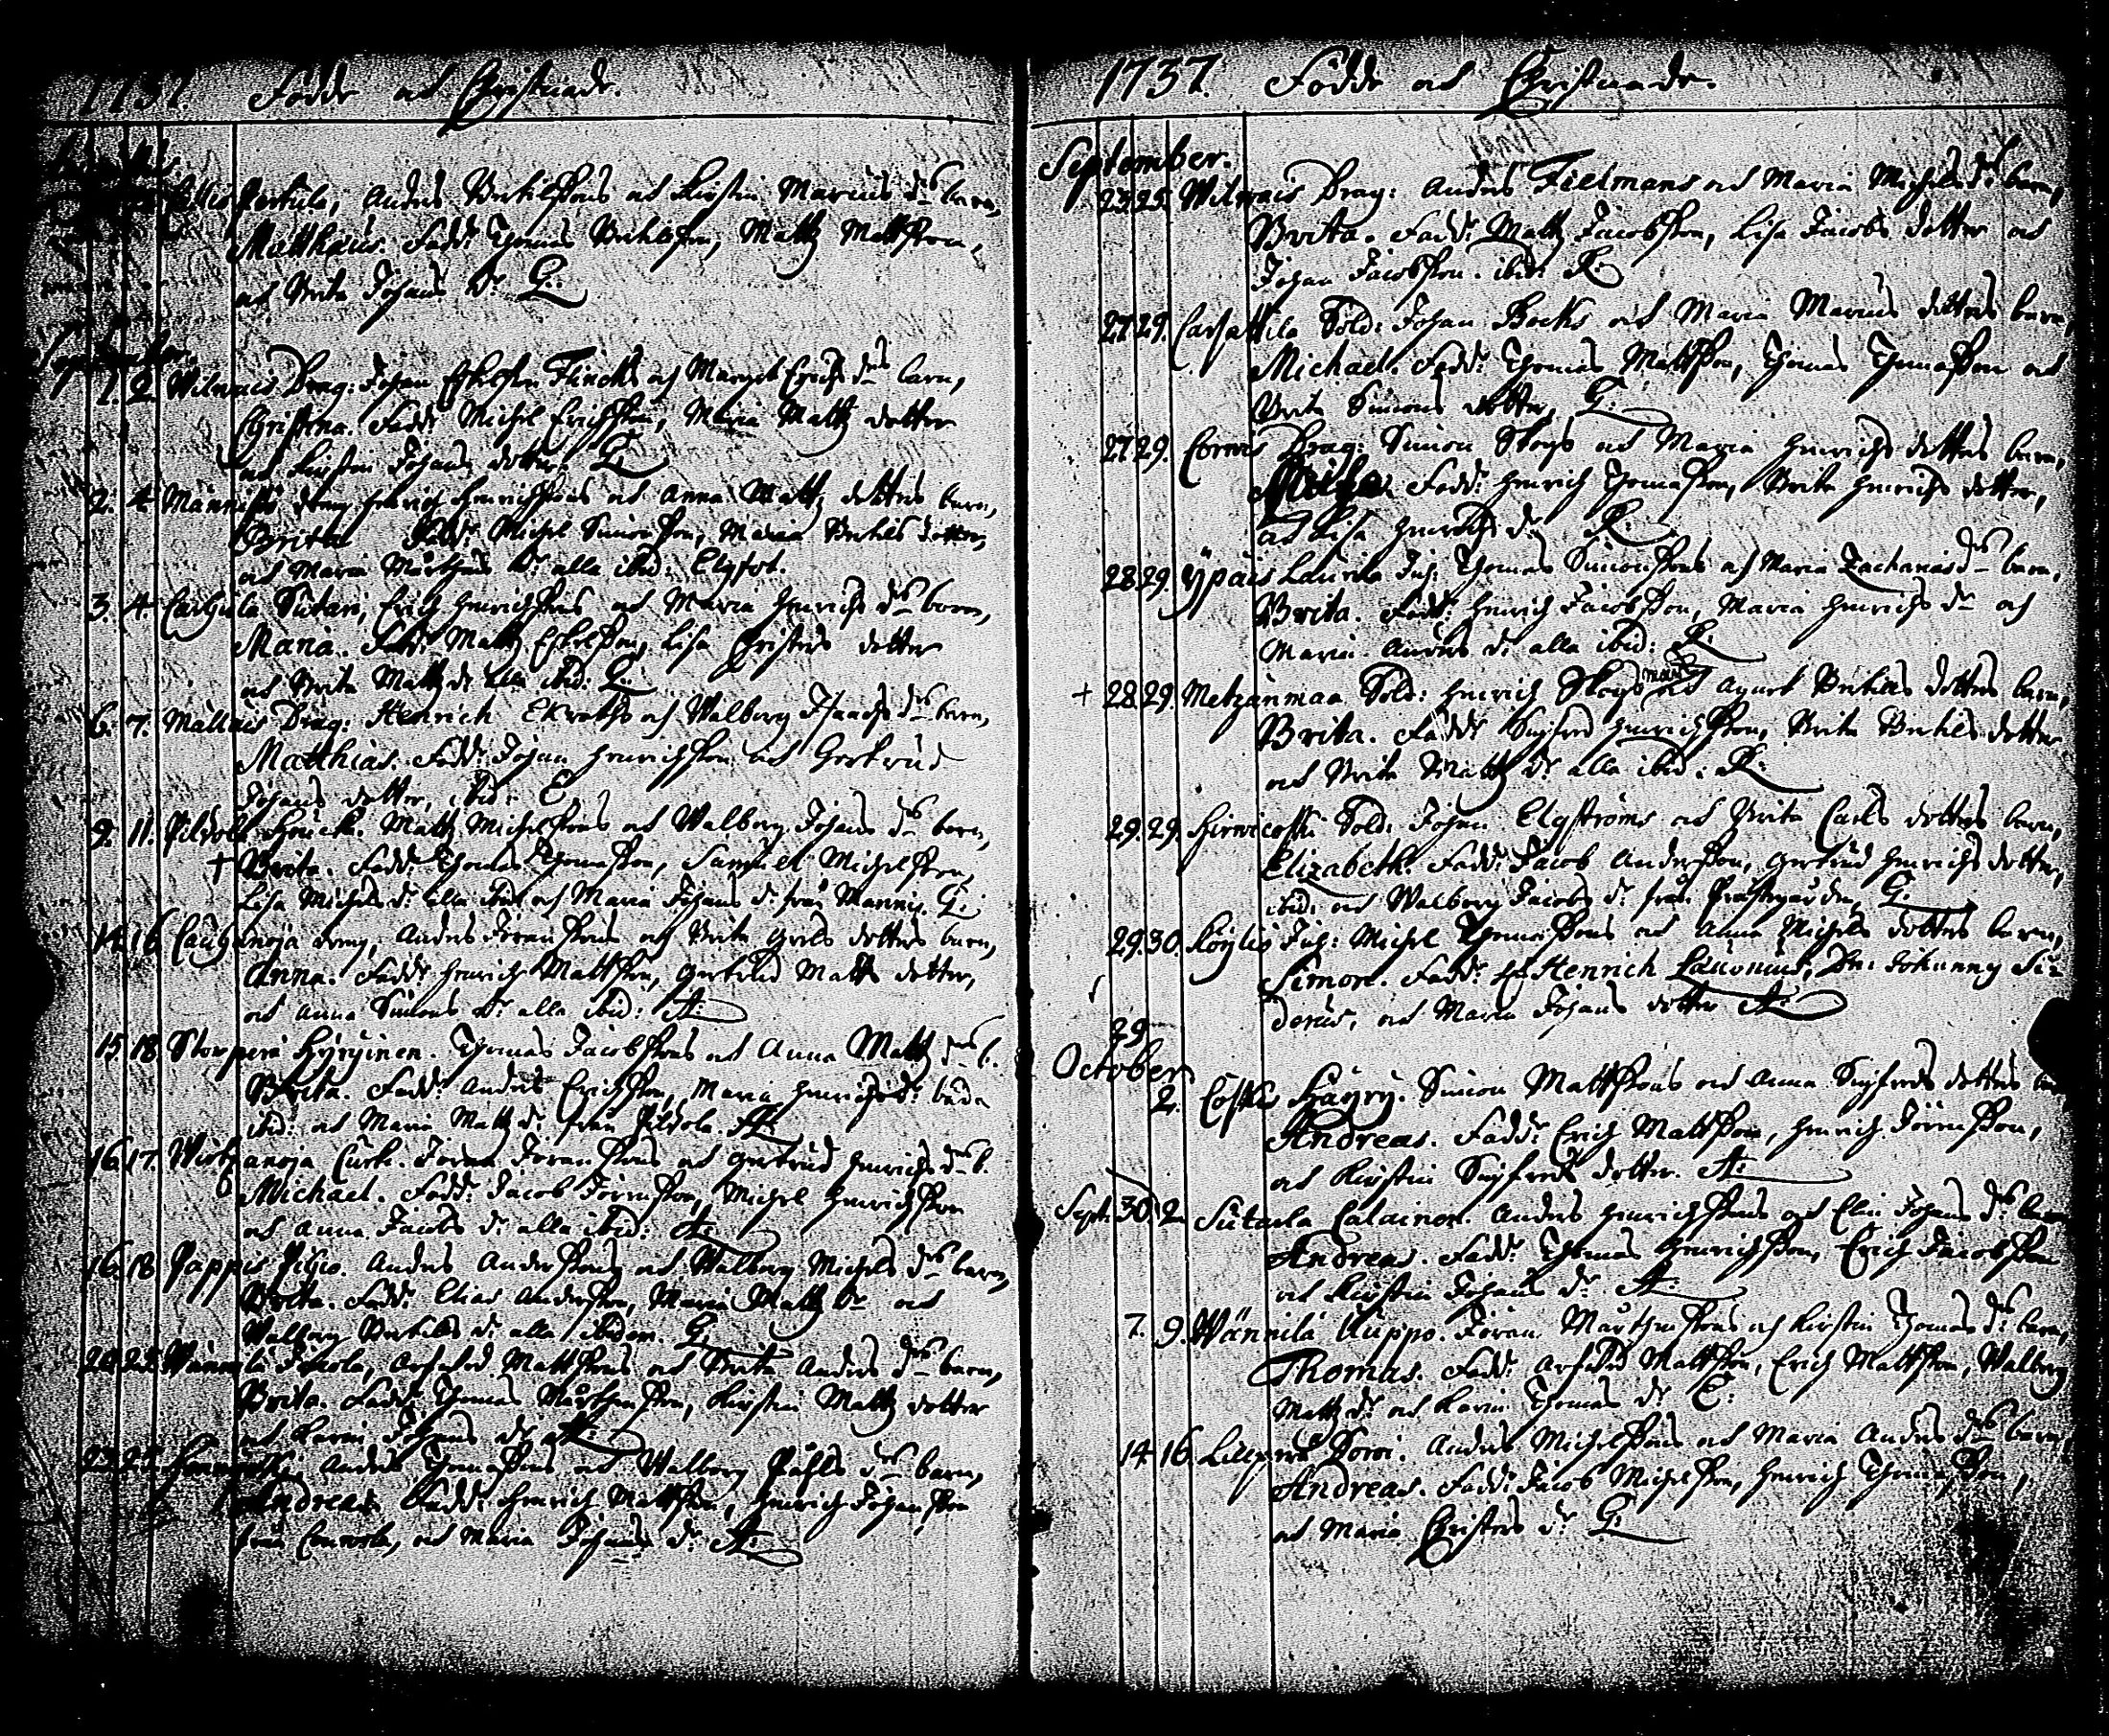 1737. Födde och Christnade.
Pertula, Anders Bertilssons och Kirstin Marcus drs barn,
Matthæus. Fadd: Thomas Bertilsson, Matts Mattsson,
och Brita Johans dr G:
September.
1. 2. Wilnais Drag: Johan Eskelss. Flincks och Margeta Erichs drs barn,
Christina. Fadd: Michel Erichsson, Maria Matts dotter
och Kirstin Johans dotter. G:
2. 4. Männistö dreng Henrich Henrichssons och Anna Matts dotters barn,
Brita. Fadd: Michel Simonsson, Maria Bertils dotter,
och Maria Mårthens dr alla ibid: Elgfot.
3. 4. Cargula Sutari, Erich Henrichssons och Maria Henrichs drs barn,
Maria. Fadd: Matts Eskelsson, Lisa Christers dotter
och Brita Matts dr alla ibid: G:
6. 7. Mallais Drag: Henrich Ekroths och Walborg Isaachs drs barn,
Matthias. Fadd: Johan Henrichsson och Gertrud
Johans dotter, ibid: E
9. 11. Pildola Heuck. Matts Michelssons och Walborg Johans drs barn,
† Brita. Fadd: Thomas Thomasson, Samuel Michelsson,
Lisa Michels dr alla ibid och Maria Johans dr från Mannis. G:
14. 16. Cauganoja dreng, Anders Joranssons och Brita Grels dotters barn,
Anna. Fadd: Henrich Mattsson, Gertrud Matts dotter,
och Anna Simons dr alla ibid: A:
15. 18. Storperä Kyryinen. Thomas Jacobssons och Anna Matts drs b.
Brita. Fadd: Anders Erichsson, Maria Henrichs dr båda
ibid: och Maria Matts dr från Pildola. A:
16. 17. Wirtzanoja Curki. Joran Joranssons och Gertrud Henrichs drs b.
Michael. Fadd: Jacob Joransson, Michel Henrichsson
och Anna Jacobs dr alla ibid: A:
16. 18. Pappis Pihjo. Anders Anderssons och Walborg Michels drs barn,
Brita. Fadd: Elias Andersson, Maria Matts dr och
Walborg Bertils dr alla ibidem. G:
Arfwed Mattssons och Brita Anders drs barn,
Brita. Fadd: Thomas Mårthensson, Kirstin Matts dotter
och Karin Johans dr A:
Anders Thomassons och Walborg Påhls drs barn,
Andreas. Fadd: Henrich Mattsson, Henrich Johansson
från och Maria Johans dr A:
1737. Födde och Christnade.
September.
23. 25. Wilnais Drag: Anders Fielmans och Maria Michels drs barn,
Brita. Fadd: Matts Jacobsson, Lisa Jacobs dotter och
Johan Jacobsson. ibid: R:
27. 29. Carsattila Sold: Johan Bocks och Maria Marcus dotters barn,
Michael. Fadd: Thomas Mattsson, Thomas Thomasson och
Brita Simons dotter, G:
27. 29. Cornis Drag: Simon Skogs och Maria Henrichs dotters barn,
Fadd: Henrich Thomasson, Brita Henrichs dotter,
och Lisa Henrichs dr R:
28. 29. Ypäis Laurila Inh: Thomas Simonssons och Maria Zacharias drs barn,
Brita. Fadd: Henrich Jacobsson, Maria Henrichs dr och
Maria Anders dr alla ibid: R:
† 28. 29. Metzänmaa Sold: Henrich Skogs och Agnet Bertils dotters barn,
Brita. Fadd: Sigfred Henrichsson, Brita Bertils dotter
och Brita Matts dr alla ibid: R:
29. 29. Hirwicoski Sold: Johan Elgströms och Brita Carls dotters barn,
Elizabeth. Fadd: Jacob Andersson, Gertrud Henrichs dotter,
ibid: och Walborg Jacobs dr från Prästegården, G.
29. 30. Köyliö Inh: Michel Thomassons och Anna Michels dotters barn,
Simon. Fadd: Hr Henrich Lauonius, Dn: Johanny Si-
derus, och Maria Johans dotter A:
29
October
2. Coskis Häyry. Simon Mattssons och Anna Sigfreds dotters barn
Andreas. Fadd: Erich Mattsson, Henrich Joransson,
och Kirstin Sigfreds dotter. A:
Sept. 30. 2. Sutarla Calainen. Anders Henrichssons och Elin Johans drs barn
Andreas. Fadd: Thomas Henrichsson, Erich Jacobsson
och Kirstin Johans dr A:
7. 9. Wännilä Uuppo. Joran Mårthenssons och Kirstin Thomas drs barn,
Thomas. Fadd: Arfwed Mattsson, Erich Mattsson, Walborg
Matts dr och Karin Thomas dr E:
14. 16. Lillperä Sowi. Anders Michelssons och Maria Anders drs barn,
Andreas. Fadd: Jacob Michelsson, Henrich Thomasson,
och Maria Christers dr G: